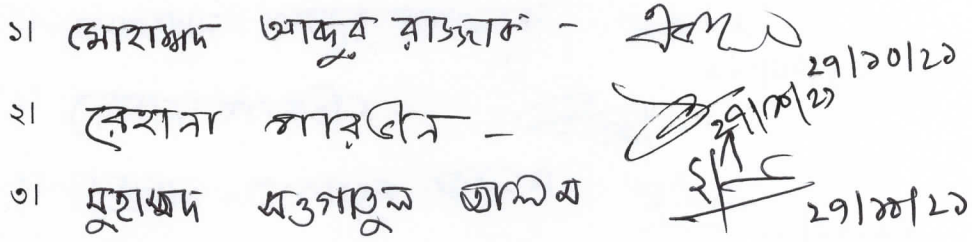 ১। মোহাম্মদ আব্দুর রাজ্জাক - ২৭/১০/২১
২। রেহানা পারভীন - ২৭/১০/২১
৩। মুহাম্মদ সওগাতুল আলম ২৭/১০/২১